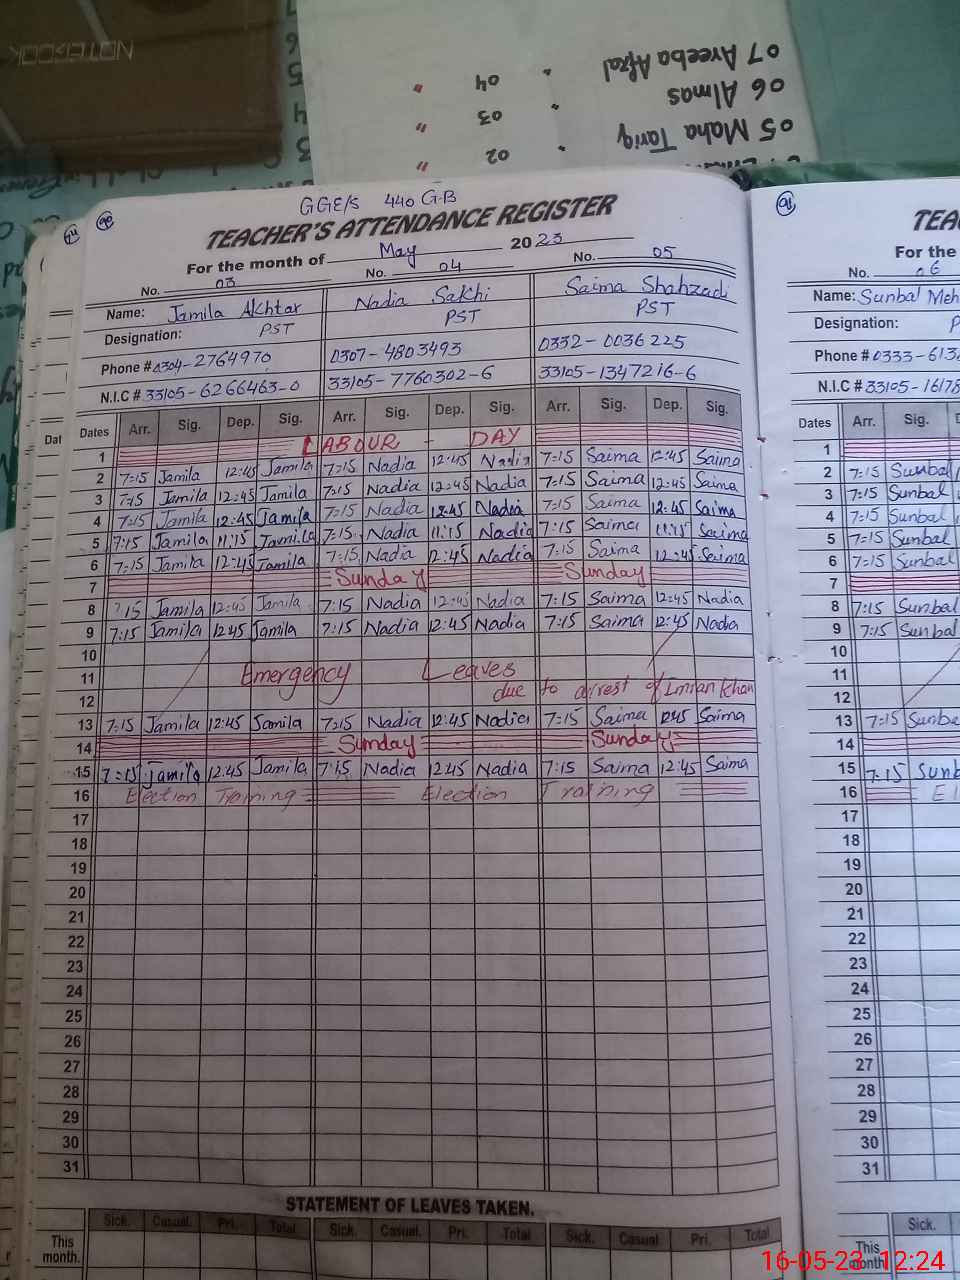 NOTEBOOK
07 Areeba Afzal " 04 "
06 Almas " 03 "
05 Maha Tariq " 02 "
GGE/S 440 G.B
TEACHER'S ATTENDANCE REGISTER
For the month of May 2023
No. 03 No. 04 No. 05
Name: Jamila Akhtar Nadia Sakhi Saima Shahzadi
Designation: PST PST PST
Phone # 0304-2764970 0307-4803493 0332-0036225
N.I.C # 33105-6266463-0 33105-7760302-6 33105-1347216-6
Dates Arr. Sig. Dep. Sig. Arr. Sig. Dep. Sig. Arr. Sig. Dep. Sig.
1 LABOUR - DAY
2 7:15 Jamila 12:45 Jamila 7:15 Nadia 12:45 Nadia 7:15 Saima 12:45 Saima
3 7:15 Jamila 12:45 Jamila 7:15 Nadia 12:45 Nadia 7:15 Saima 12:45 Saima
4 7:15 Jamila 12:45 Jamila 7:15 Nadia 12:45 Nadia 7:15 Saima 12:45 Saima
5 7:15 Jamila 11:15 Jamila 7:15 Nadia 11:15 Nadia 7:15 Saima 11:15 Saima
6 7:15 Jamila 12:45 Jamila 7:15 Nadia 12:45 Nadia 7:15 Saima 12:45 Saima
7 Sunday Sunday
8 7:15 Jamila 12:45 Jamila 7:15 Nadia 12:45 Nadia 7:15 Saima 12:45 Nadia
9 7:15 Jamila 12:45 Jamila 7:15 Nadia 12:45 Nadia 7:15 Saima 12:45 Nadia
10
11 Emergency Leaves
12 due to arrest of Imran Khan
13 7:15 Jamila 12:45 Jamila 7:15 Nadia 12:45 Nadia 7:15 Saima 12:45 Saima
14 Sunday Sunday
15 7:15 Jamila 12:45 Jamila 7:15 Nadia 12:45 Nadia 7:15 Saima 12:45 Saima
16 Election Training Election Training
17
18
19
20
21
22
23
24
25
26
27
28
29
30
31
STATEMENT OF LEAVES TAKEN.
Sick. Casual. Pri. Total Sick. Casual. Pri. Total Sick. Casual Pri. Total
This month.
Dat
91
TEA
For the
No. 06
Name: Sunbal Meh
Designation: P
Phone # 0333-613
N.I.C # 33105-16178
Dates Arr. Sig. D
1
2 7:15 Sunbal
3 7:15 Sunbal
4 7:15 Sunbal
5 7:15 Sunbal
6 7:15 Sunbal
7
8 7:15 Sunbal
9 7:15 Sunbal
10
11
12
13 7:15 Sunba
14
15 7:15 Sunb
16 El
17
18
19
20
21
22
23
24
25
26
27
28
29
30
31
Sick.
This month
16-05-23 12:24